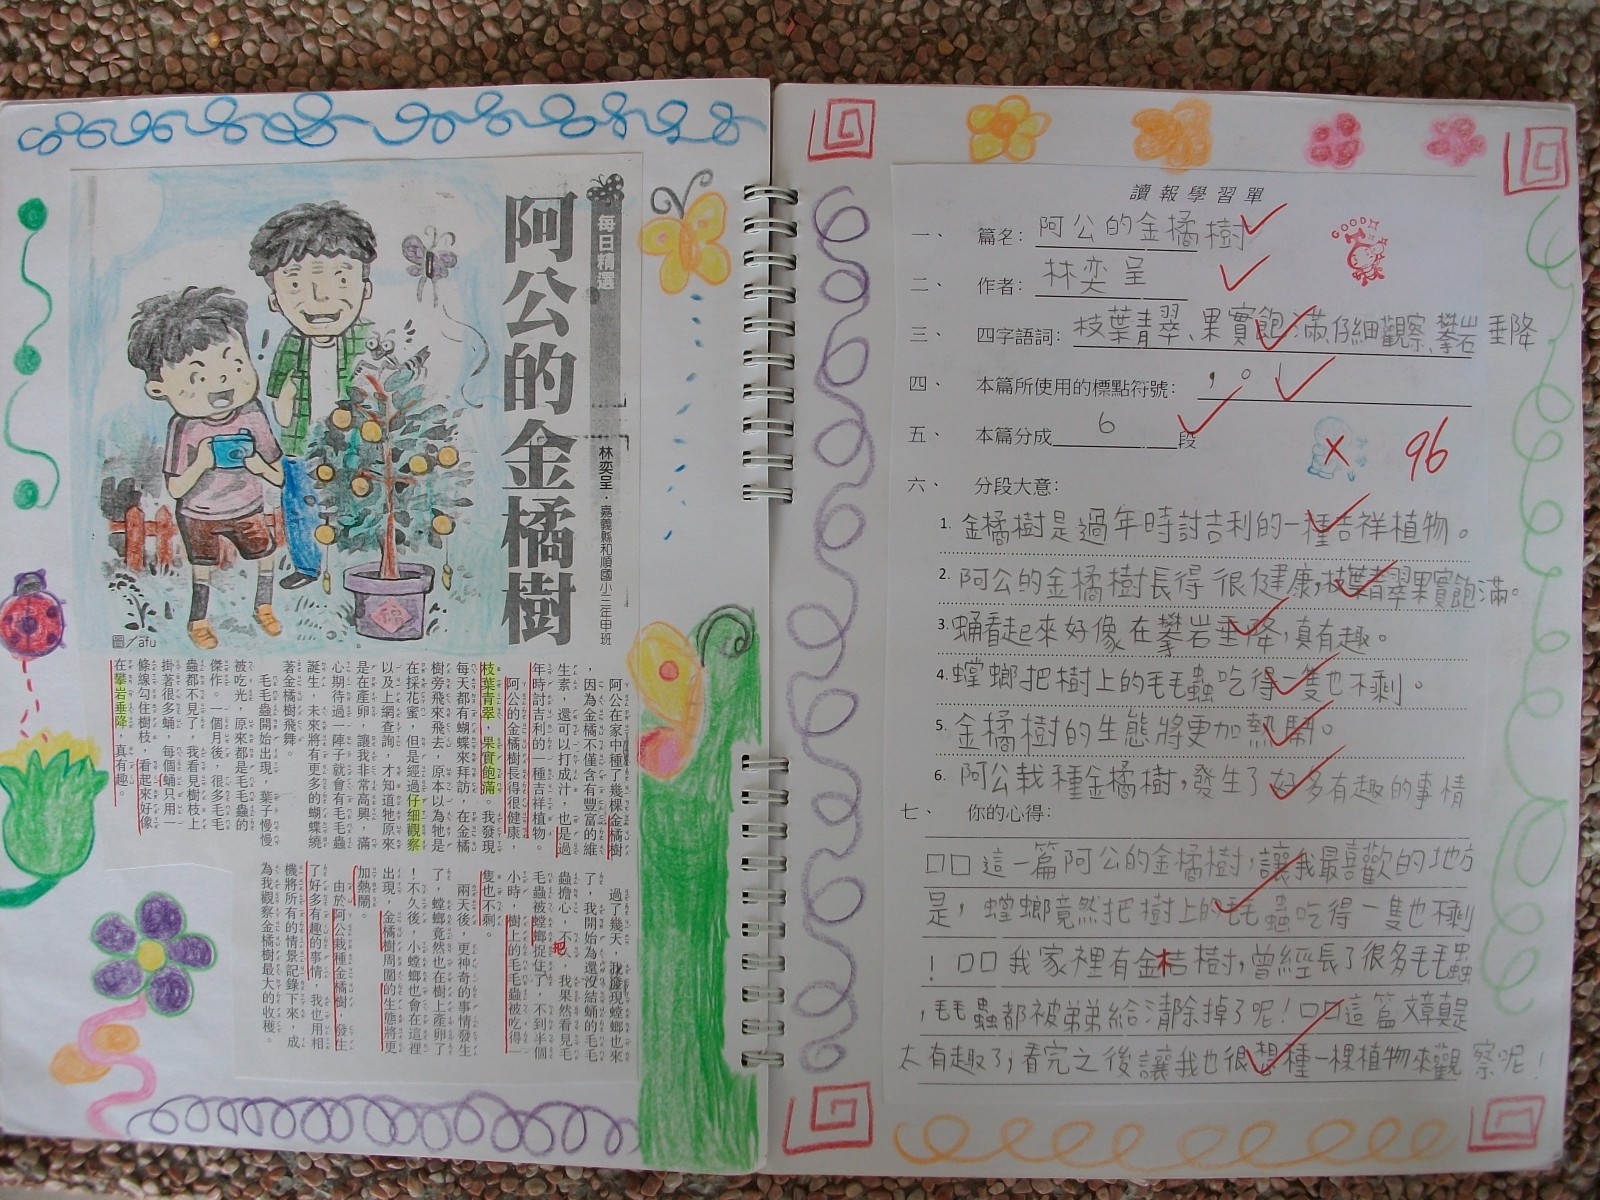 每日精選
阿公的金橘樹
林奕呈．嘉義縣和順國小三年甲班
圖／afu
阿公在家中種了幾棵金橘樹
，因為金橘不僅含有豐富的維
生素，還可以打成汁，也是過
年時討吉利的一種吉祥植物。
阿公的金橘樹長得很健康，
枝葉青翠，果實飽滿。我發現
每天都有蝴蝶來拜訪，在金橘
樹旁飛來飛去，原本以為牠是
在採花蜜，但是經過仔細觀察
以及上網查詢，才知道牠原來
是在產卵，讓我非常高興，滿
心期待過一陣子就會有毛毛蟲
誕生，未來將有更多的蝴蝶繞
著金橘樹飛舞。
毛毛蟲開始出現，葉子慢慢
被吃光，原來都是毛毛蟲的
傑作。一個月後，很多毛毛
蟲都不見了，我看見樹枝上
掛著很多蛹，每個蛹只用一
條線勾住樹枝，看起來好像
在攀岩垂降，真有趣。
過了幾天，我發現螳螂也來
了，我開始為還沒結蛹的毛毛
蟲擔心，不久，我果然看見毛
毛蟲被螳螂捉住了，不到半個
小時，樹上的毛毛蟲被吃得一
隻也不剩。
兩天後，更神奇的事情發生
了，螳螂竟然也在樹上產卵了
！不久後，小螳螂也會在這裡
出現，金橘樹周圍的生態將更
加熱鬧。
由於阿公栽種金橘樹，發生
了好多有趣的事情，我也用相
機將所有的情景記錄下來，成
為我觀察金橘樹最大的收穫。
把
讀報學習單
一、 篇名：阿公的金橘樹
GOOD
二、 作者：林奕呈
三、 四字語詞：枝葉青翠、果實飽滿、仔細觀察、攀岩垂降
四、 本篇所使用的標點符號：，。！
五、 本篇分成6段
96
六、 分段大意：
1. 金橘樹是過年時討吉利的一種吉祥植物。
2. 阿公的金橘樹長得很健康，枝葉青翠果實飽滿。
3. 蛹看起來好像在攀岩垂降，真有趣。
4. 螳螂把樹上的毛毛蟲吃得一隻也不剩。
5. 金橘樹的生態將更加熱鬧。
6. 阿公栽種金橘樹，發生了好多有趣的事情
七、 你的心得：
□□這一篇阿公的金橘樹，讓我最喜歡的地方
是，螳螂竟然把樹上的毛毛蟲吃得一隻也不剩
！□□我家裡有金桔樹，曾經長了很多毛毛蟲
，毛毛蟲都被弟弟給清除掉了呢！□□這篇文章真是
太有趣了，看完之後讓我也很想種一棵植物來觀察呢！